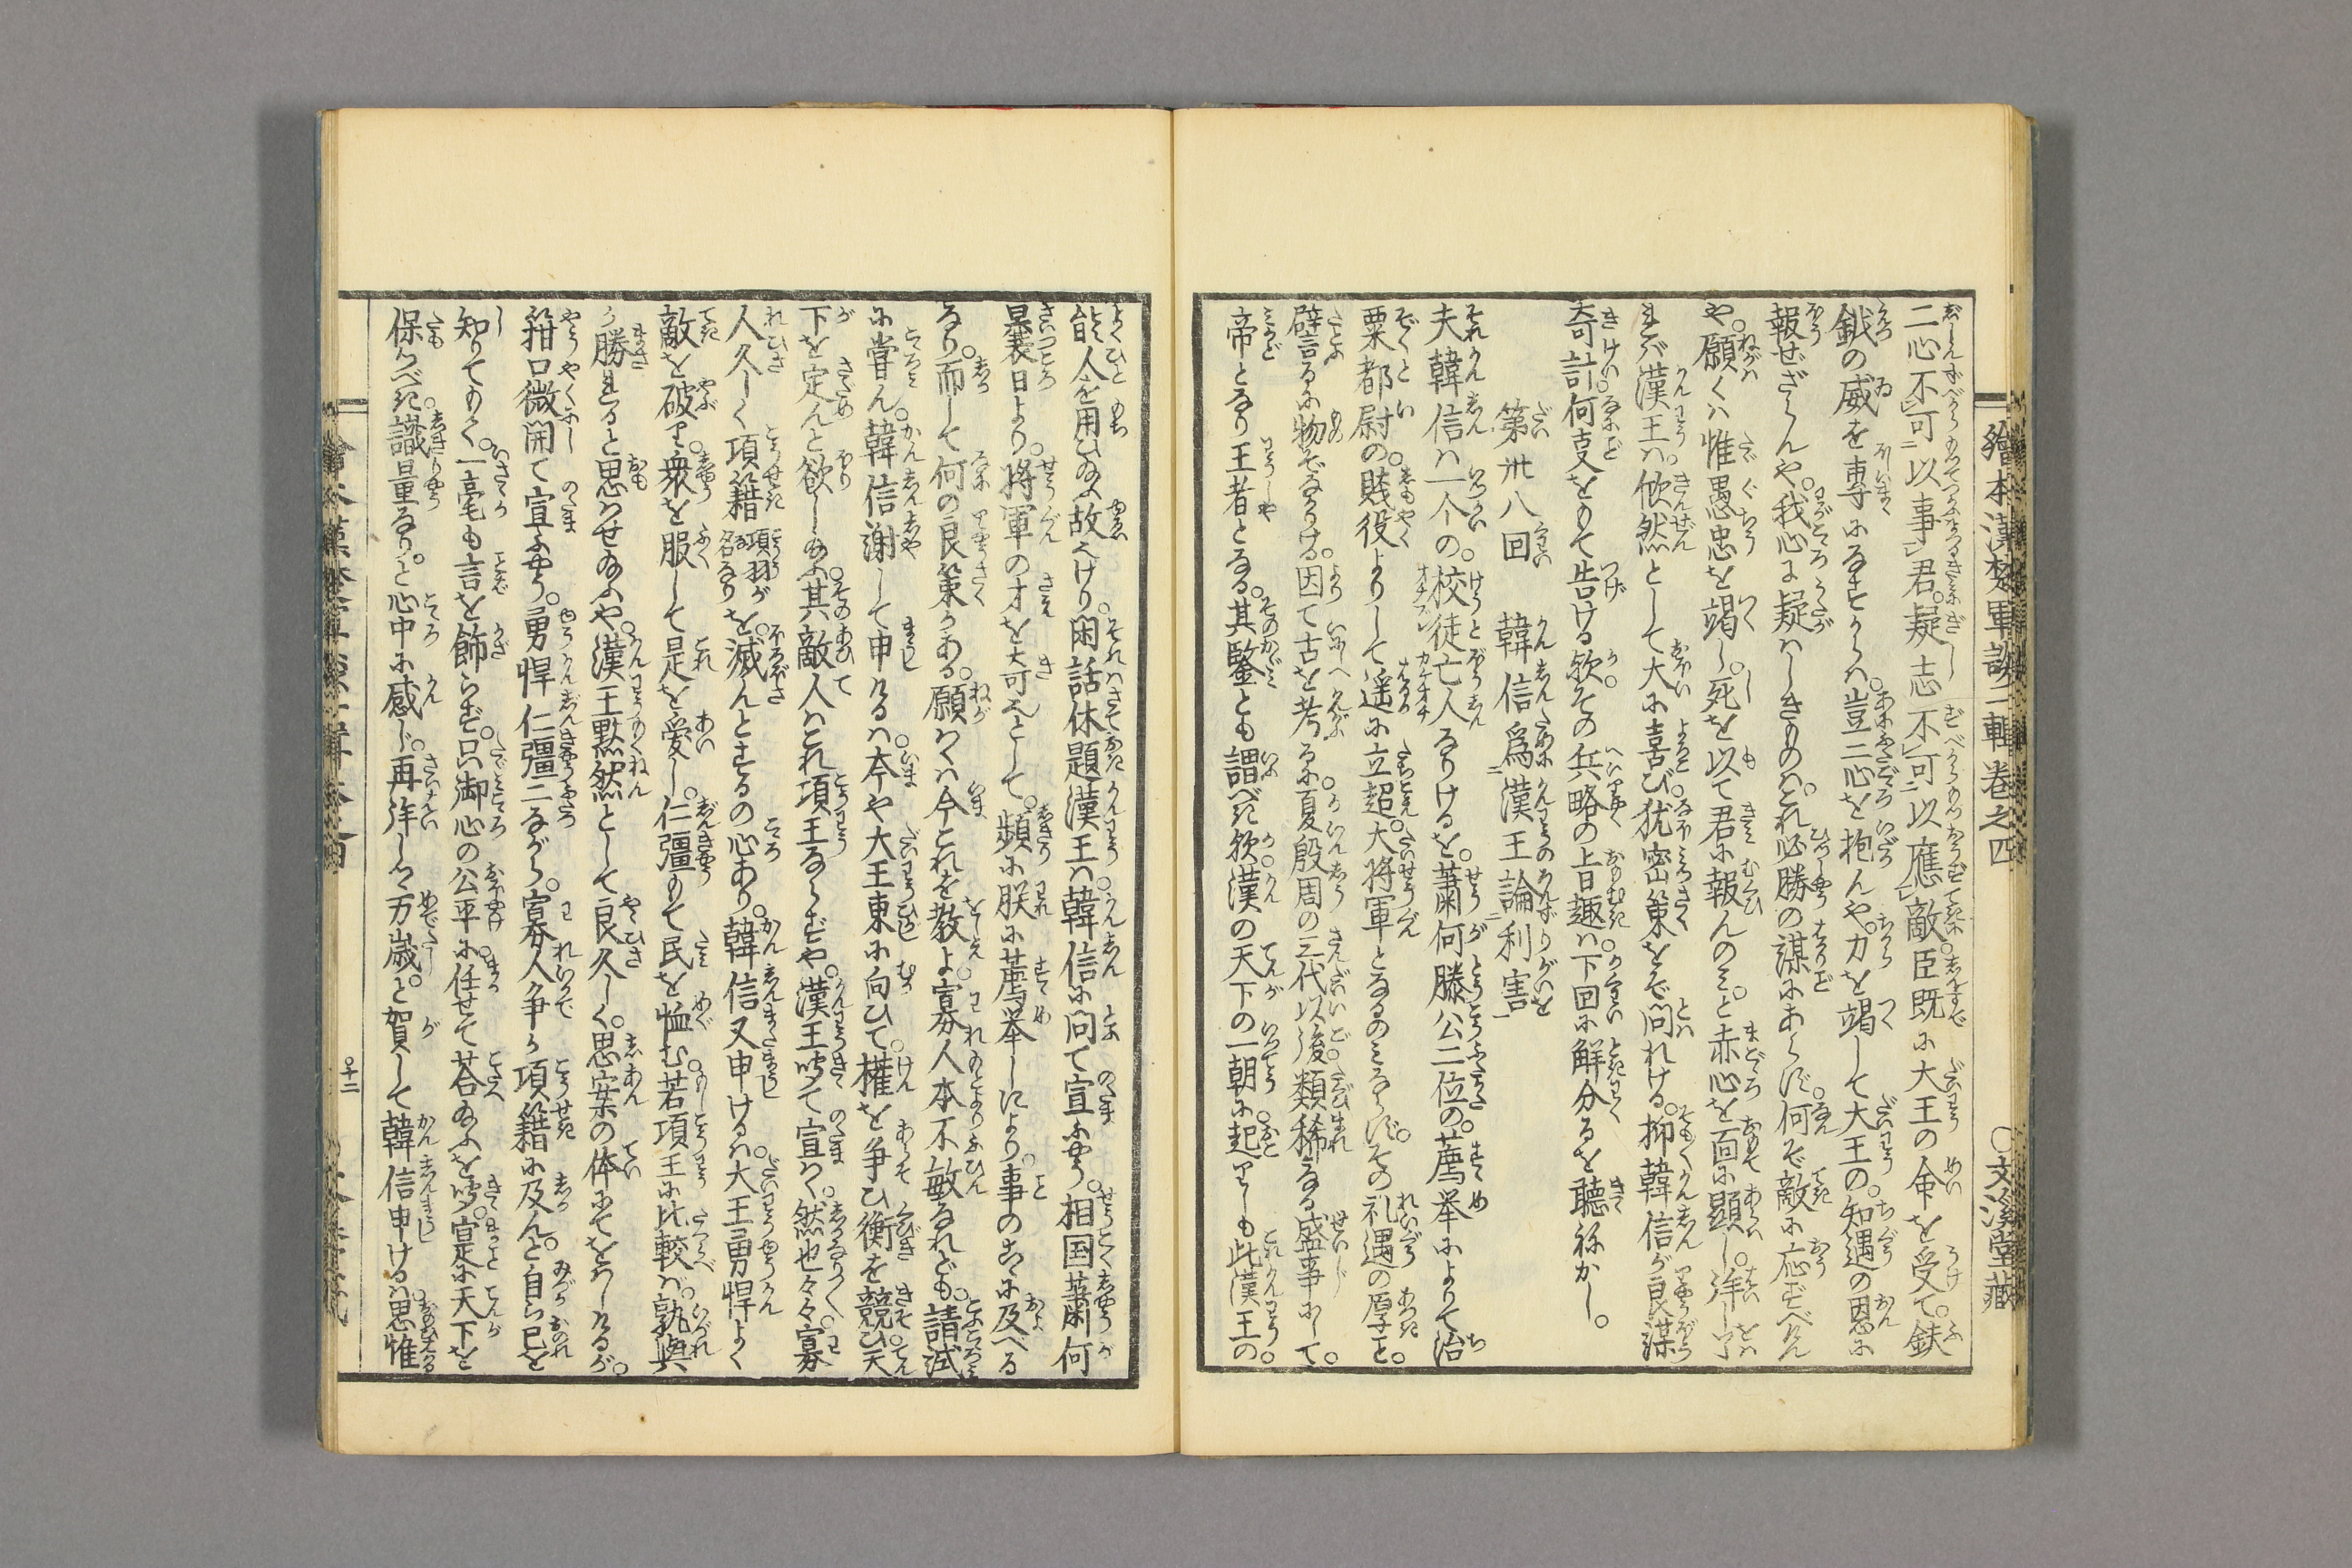 繪本漢楚軍談二輯卷之四　○文溪堂藏
二心不可以事君。疑志不可以應敵。臣既に大王の命を受て。鈇
鉞の威を専になすからハ。豈二心を抱んや。力を竭して大王の。知遇の恩に
報ぜざらんや。我心に疑ハしきものハ。これ必勝の謀にあらず。何ぞ敵に応ずべけん
や。願くハ惟愚忠を竭し。死を以て君に報んのミ。と赤心を面に顕し。拜し
ければ漢王ハ。忻然として大に喜び。犹密策をぞ問れける。抑韓信が良謀
奇計何事をもて告ける欤。その兵略の旨趣ハ。下回に解分るを聴ねかし。
第卅八回　韓信爲漢王論利害
夫韓信ハ一个の。校徒亡人なりけるを。蕭何滕公二位の。薦举によりて治
粟都尉の。賤役よりして遥に立超。大将軍となるのミならず。その礼遇の厚こと。
譬るに物ぞなかりける。因て古を考るに。夏殷周の三代以後類稀なる盛事にして。
帝となり王者となる。其鑒とも謂べき欤。漢の天下の一朝に起りしも此漢王の
能人を用ひ給ふ故也けり。閑話休題漢王ハ。韓信に問て宣ふやう。相国蕭何
曩日より。将軍の才を大可也として。頻に朕に薦举しにより。事のこゝに及べる
なり。而して何の良策かある。願くハ今これを教よ。寡人本不敏なれども。請試
に嘗ん。韓信謝して申けるハ。今や大王東に向ひて。權を争ひ衡を競ひ天
下を定んと欲し給ふ。其敵人ハこれ項王ならずや。漢王聴て宣く。然也々々。寡
人久しく項籍項羽が名なりを。滅さんとするの心あり。韓信又申けるハ。大王勇悍よく
敵を破り。衆を服して是を愛し。仁彊もて民を恤む。若項王に比較バ。孰與
か勝れると思ハせ給ふや。漢王黙然として良久しく。思案の体にてをハしけるが。
箝口微開て宣ふやう。勇悍仁彊二ながら。寡人争か項籍に及ん。と自ら己を
知りてもて。一毫も言を飾らず。只御心の公平に任せて荅給ふを聴。寔に天下を
保つべき。識量なり。と心中に感じ。再拜しつゝ万歳。と賀して韓信申けるハ。思惟